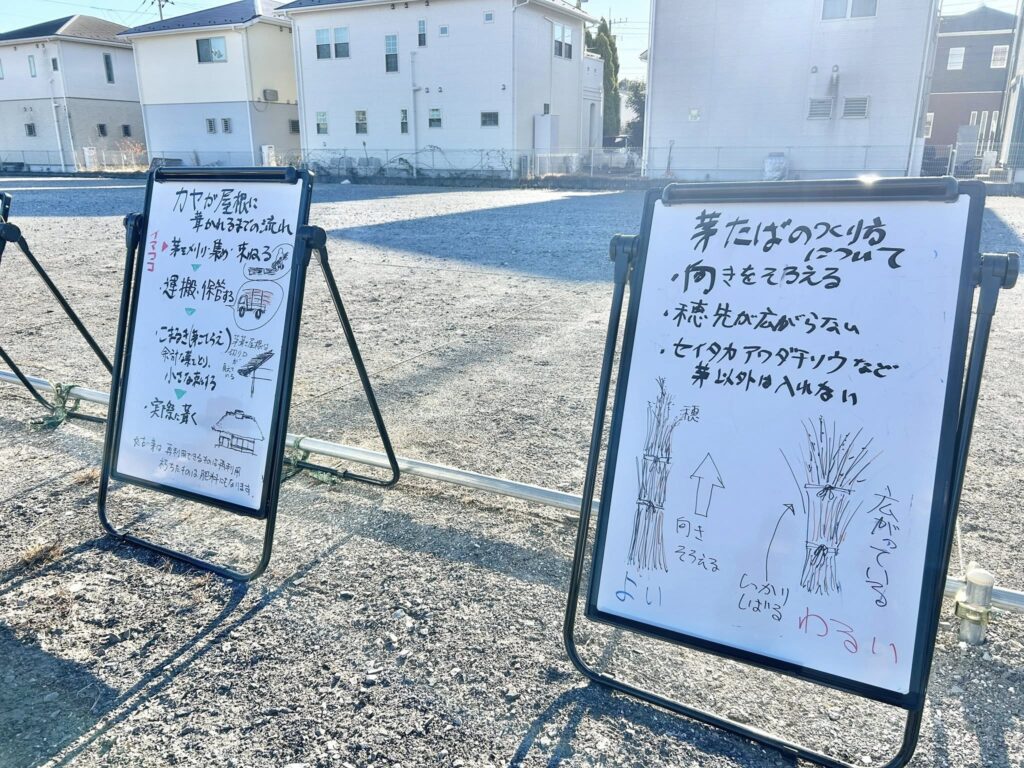 カヤが屋根に
葺かれるまでの流れ
イマココ
茅を刈り・集め・束ねる
運搬・保管する
・こまるき(茅ごしらえ)
余計な葉をとり、
小さな束にする
・実際に葺く
古い茅は再利用できるものは再利用
朽ちたものは肥料にもなります。
茅たばのつくり方
について
・向きをそろえる
・穂先が広がらない
・セイタカアワダチソウなど
茅以外は入れない
穂
向き
そろえる
よい
しっかり
しばる
広がっている
わるい